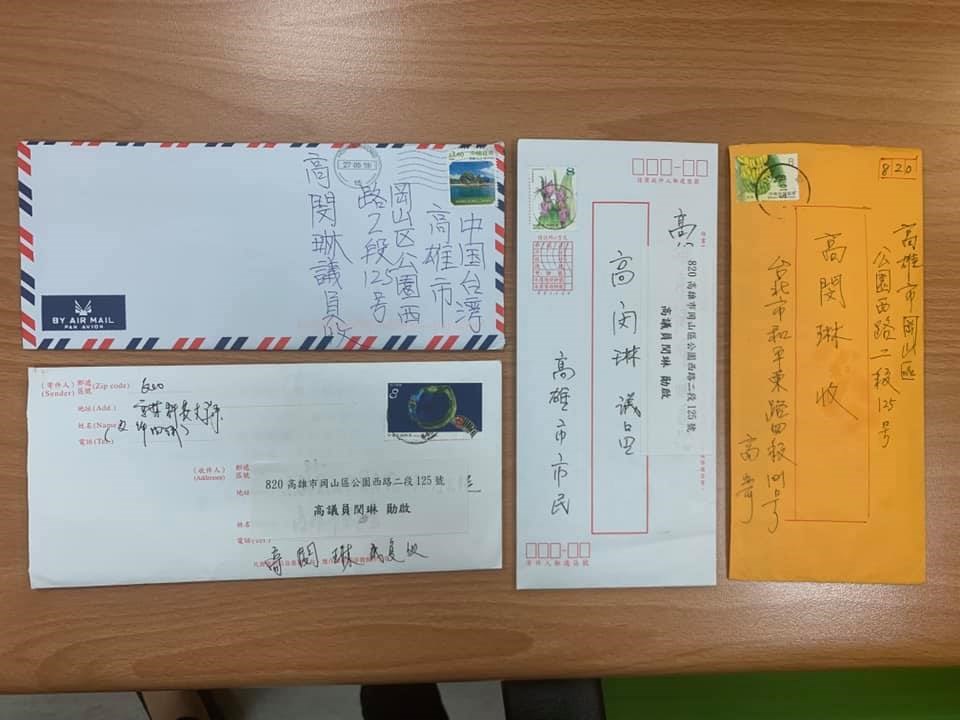 中国台湾
高雄市
岡山区公園西
路2段125号
高閔琳議員收
27·05·19
BY AIR MAIL
PAR AVION
(寄件人)
(Sender)
郵遞區號(Zip code)
地址(Add.)
姓名(Name)
電話(Tel)
8
(收件人)
(Addressee)
郵遞區號
地址
820 高雄市岡山區公園西路二段125號
高議員閔琳 勛啟
姓名
電話(Tel)
高閔琳
8
高
820 高雄市岡山區公園西路二段125號
高議員閔琳 勛啟
高閔琳議員
高雄市市民
寄件人郵遞區號
8
820
高雄市岡山區
公園西路二段125号
高閔琳 收
台北市和平東路四段101号